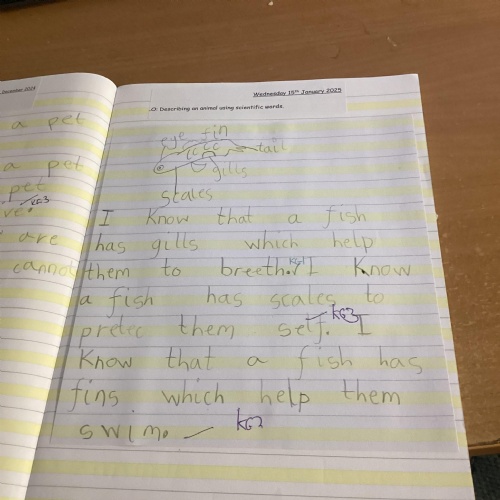 December 2024
a pet
a pet
pet
ve. KG3
are
cannot
Wednesday 15th January 2025
LO: Describing an animal using scientific words.
eye fin
tail
gills
scales
I Know that a fish
has gills which help
them to breeth. KG1 I Know
a fish has scales to
pretec them self. KG3 I
Know that a fish has
fins which help them
swim. KG2